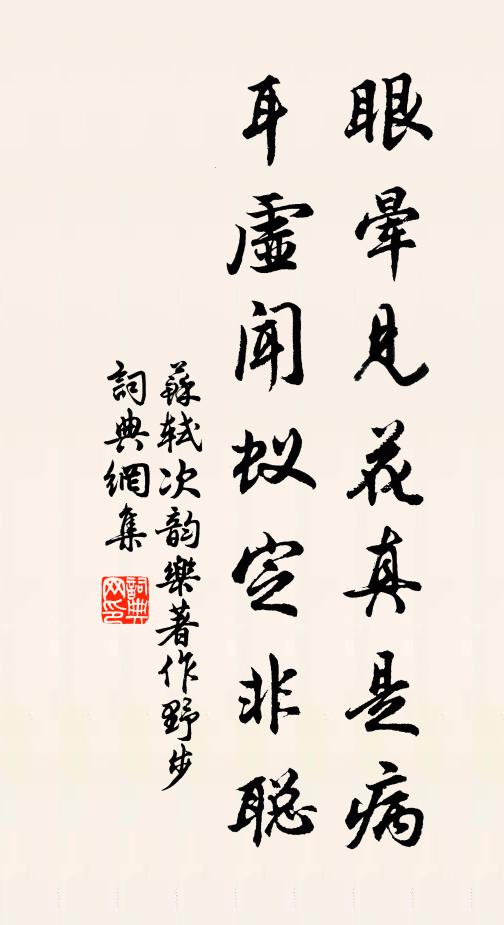 眼暈見花真是病
耳虛聞蚁定非聪
蘇軾次韵樂著作野步
詞典網集
詞典網印